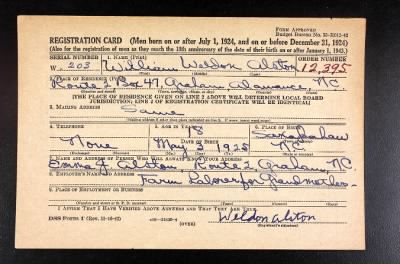 FORM APPROVED
REGISTRATION CARD (Men born on or after July 1, 1924, and on or before December 31, 1924)
(Also for the registration of men as they reach the 18th anniversary of the date of their birth on or after January 1, 1943.)
SERIAL NUMBER 1. NAME (Print) ORDER NUMBER
W. 203 William Weldon Alston 12,395
2. PLACE OF RESIDENCE (Print)
Route 2 Box 47 Graham, Alamance, N.C.
[THE PLACE OF RESIDENCE GIVEN ON LINE 2 ABOVE WILL DETERMINE LOCAL BOARD
JURISDICTION; LINE 2 OF REGISTRATION CERTIFICATE WILL BE IDENTICAL]
3. MAILING ADDRESS
Same
4. TELEPHONE 5. AGE IN YEARS 6. PLACE OF BIRTH
18 Saxapahaw
DATE OF BIRTH
None May 2 1925 N.C.
7. NAME AND ADDRESS OF PERSON WHO WILL ALWAYS KNOW YOUR ADDRESS
Emma J. Alston, Route 2, Graham, N.C.
8. EMPLOYER'S NAME AND ADDRESS
Farm Laborer for Grandmother
9. PLACE OF EMPLOYMENT OR BUSINESS
I AFFIRM THAT I HAVE VERIFIED ABOVE ANSWERS AND THAT THEY ARE TRUE.
Weldon Alston
DSS Form 1 (OVER) (Registrant's signature)